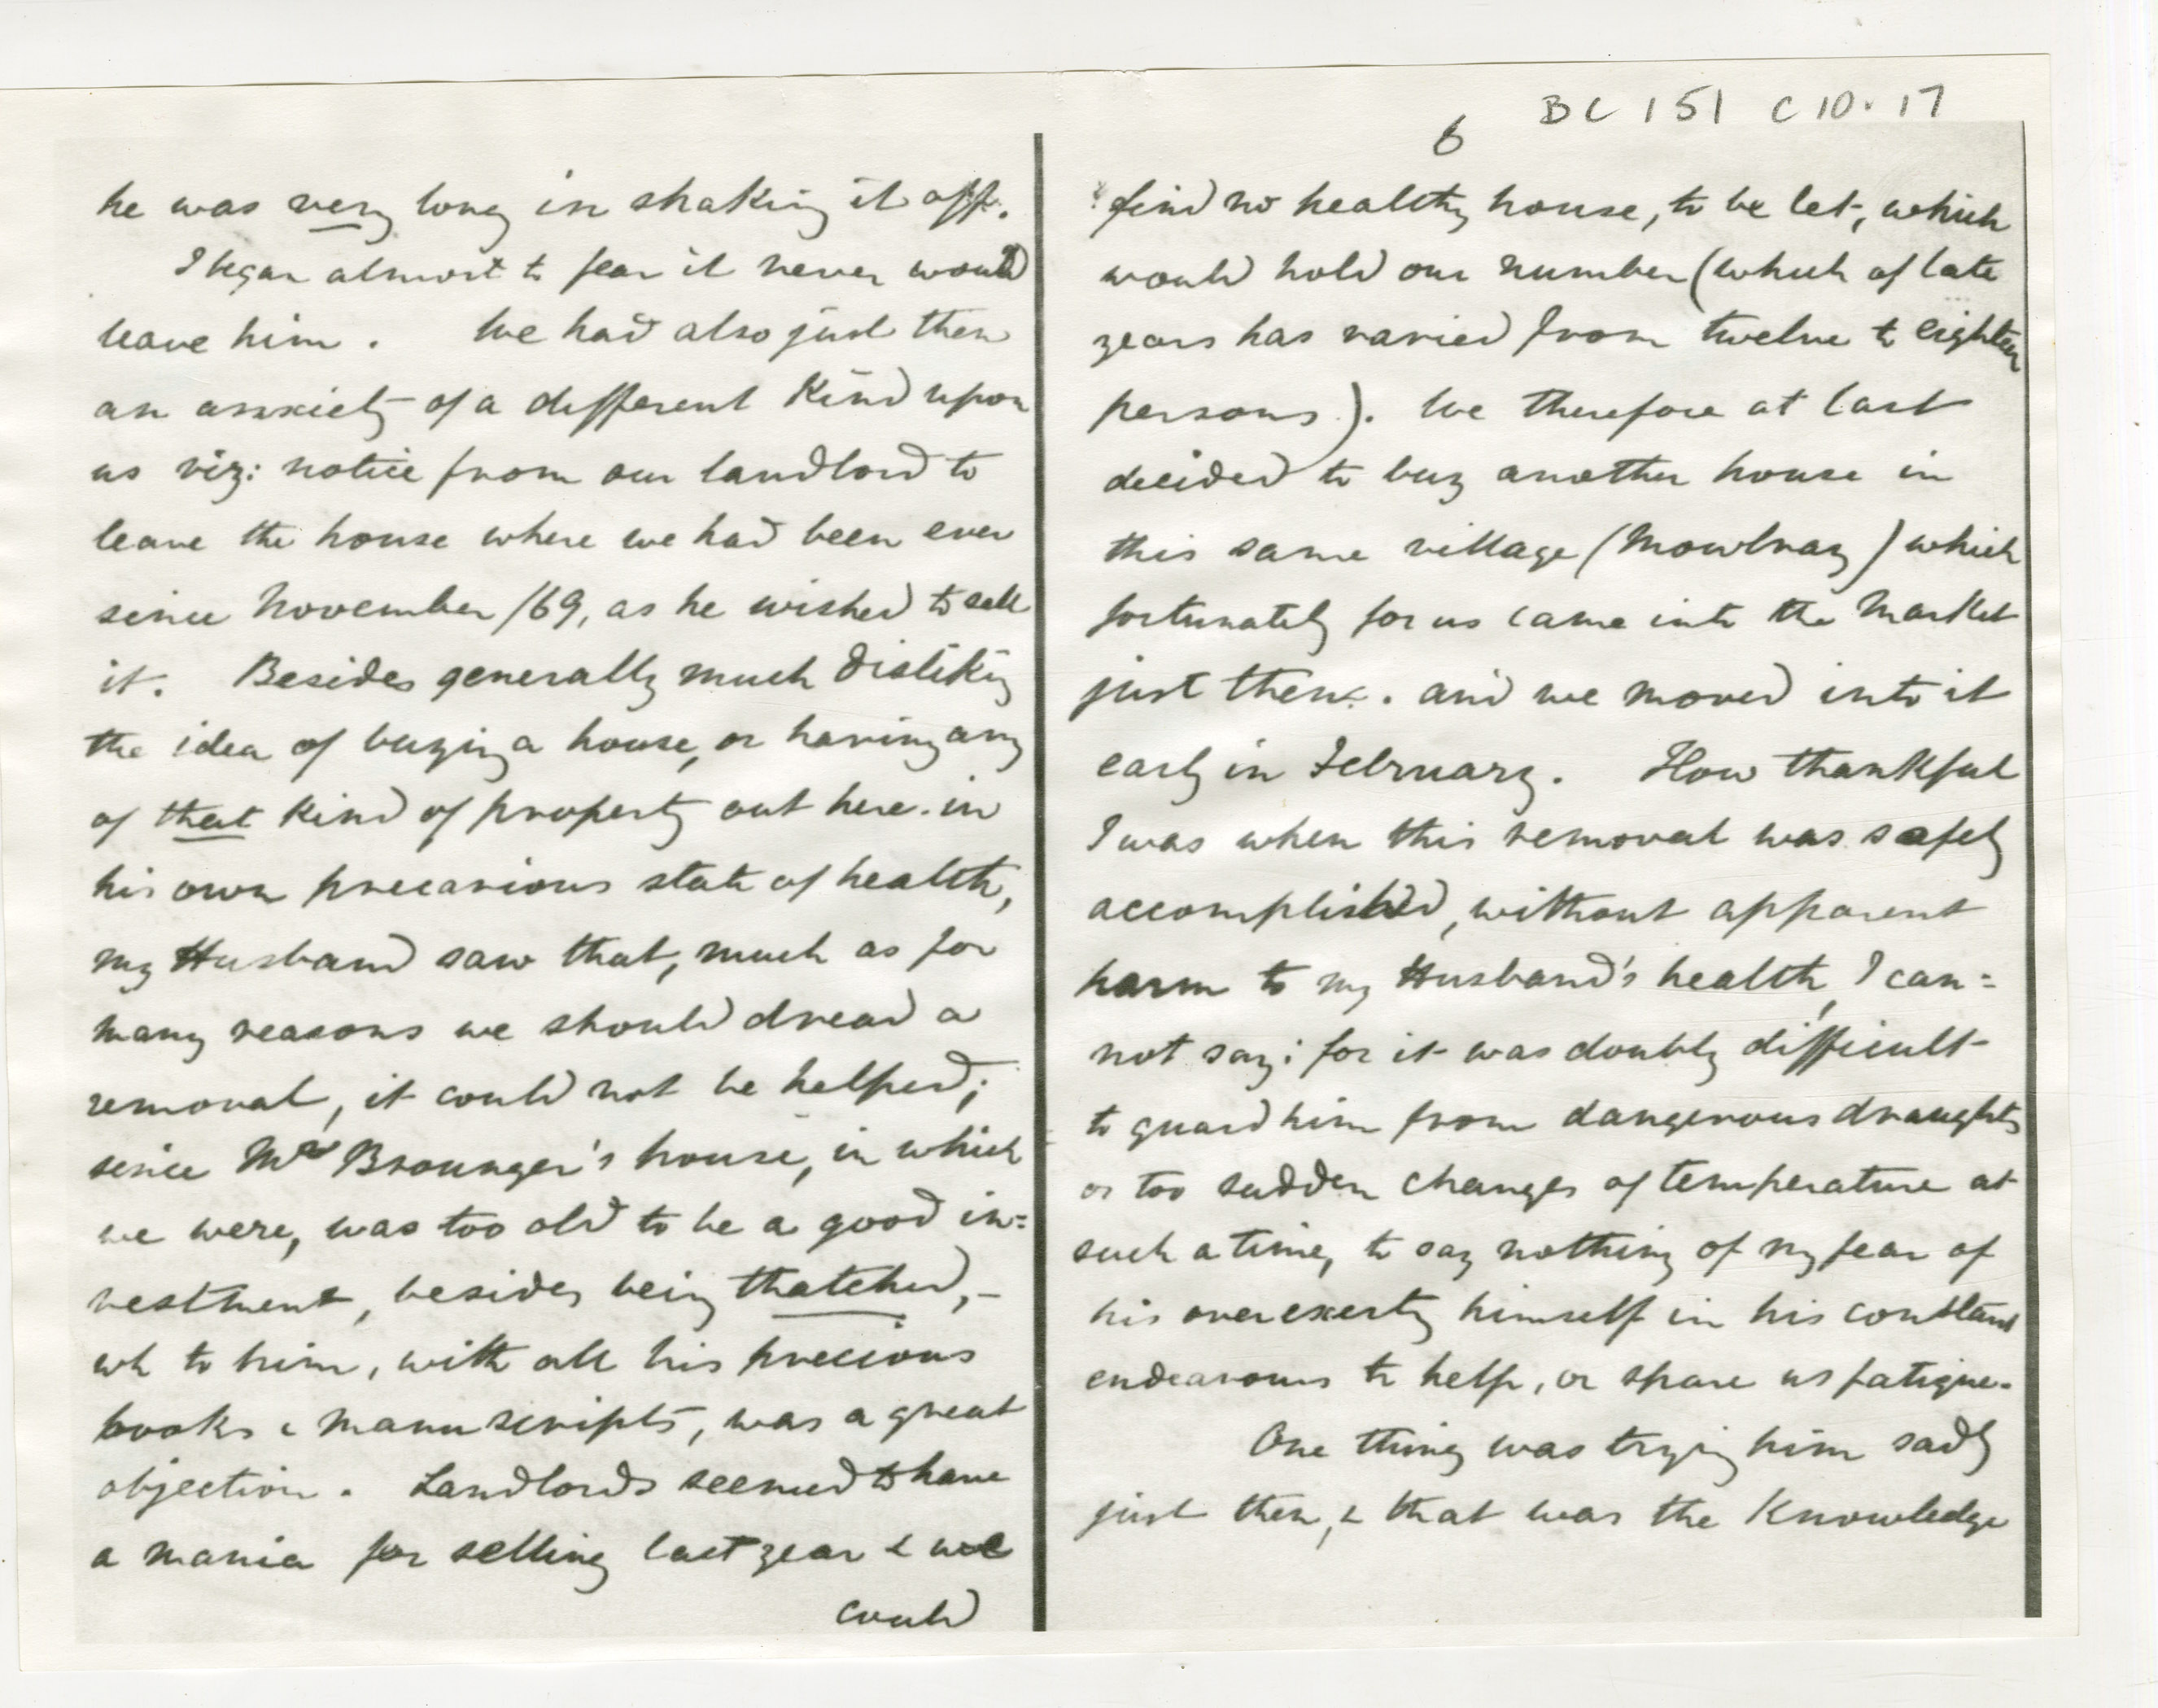 he was very long in shaking it off.
I began almost to fear it never would
leave him. We had also just then
an anxiety of a different kind upon
us viz: notice from our landlord to
leave the house where we had been ever
since November /69, as he wished to sell
it. Besides generally much disliking
the idea of buying a house, or having any
of that kind of property out here. in
his own precarious state of health,
my Husband saw that, much as for
many reasons we should dread a
removal, it could not be helped;
since Mrs Brounger's house, in which
we were, was too old to be a good in=
vestment, besides being thatched, -
wh to him, with all his precious
books & manuscripts, was a great
objection. Landlords seemed to have
a mania for selling last year & we
could
BC 151 C10.17
6
find no healthy house, to be let, which
would hold our number (which of late
years has varied from twelve to eighteen
persons). We therefore at last
decided to buy another house in
this same village (Mowbray) which
fortunately for us came into the market
just then. and we moved into it
early in February. How thankful
I was when this removal was safely
accomplished, without apparent
harm to my Husband's health, I can=
not say; for it was doubly difficult
to guard him from dangerous draughts
or too sudden changes of temperature at
such a time, to say nothing of my fear of
his overexerting himself in his constant
endeavours to help, or spare us fatigue.
One thing was trying him sadly
just then, & that was the knowledge